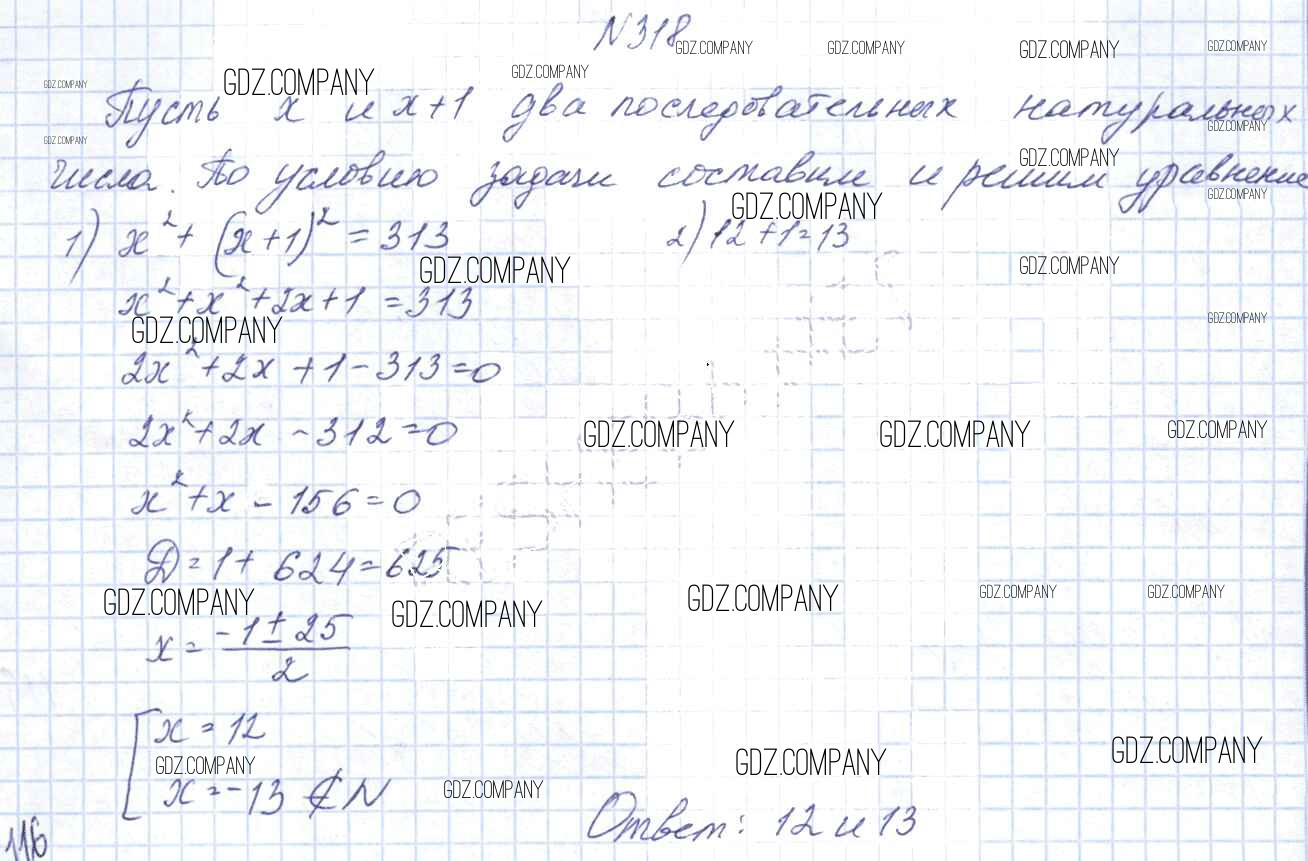 N318
GDZ.COMPANY GDZ.COMPANY GDZ.COMPANY GDZ.COMPANY
GDZ.COMPANY GDZ.COMPANY GDZ.COMPANY
Пусть x и x+1 два последовательных натуральных
GDZ.COMPANY GDZ.COMPANY
GDZ.COMPANY
числа. По условию задачи составим и решим уравнение
GDZ.COMPANY GDZ.COMPANY
1) x² + (x+1)² = 313 2) 12+1=13
GDZ.COMPANY GDZ.COMPANY
x²+x²+2x+1=313
GDZ.COMPANY GDZ.COMPANY
2x²+2x+1-313=0
2x²+2x-312=0
GDZ.COMPANY GDZ.COMPANY GDZ.COMPANY
x²+x-156=0
D=1+624=625
GDZ.COMPANY GDZ.COMPANY GDZ.COMPANY GDZ.COMPANY GDZ.COMPANY
x = (-1±25)/2
[x=12
GDZ.COMPANY GDZ.COMPANY GDZ.COMPANY
x=-13 ∉ N
GDZ.COMPANY
Ответ: 12 и 13
116